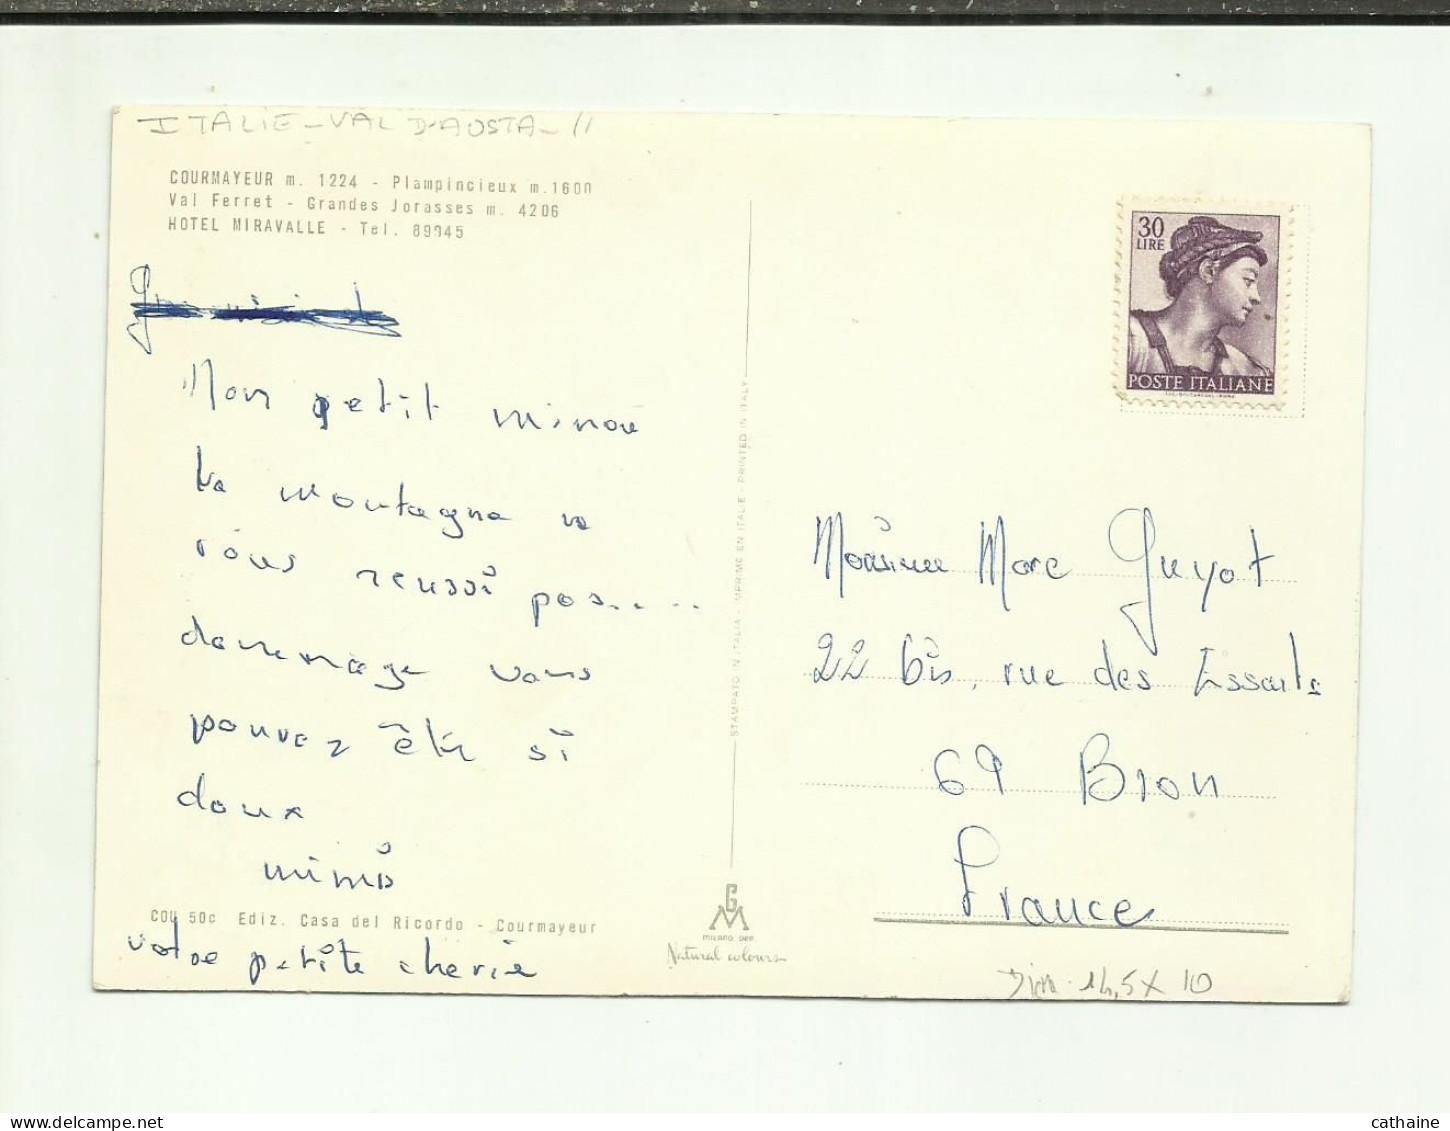 ITALIE - VAL D'AOSTA - 11
COURMAYEUR m. 1224 - Plampincieux m.1600
Val Ferret - Grandes Jorasses m. 4206
HOTEL MIRAVALLE - Tel. 89945
Mon petit minou
la montagne ne
vous reussi pas......
dommage vous
pouvez être si
doux
mimi
COU 50c Ediz. Casa del Ricordo - Courmayeur
votre petite cherie
STAMPATO IN ITALIA - IMPRIMÉ EN ITALIE - PRINTED IN ITALY
GM
MILANO DEP.
Natural colours
30
LIRE
POSTE ITALIANE
Monsieur Marc Guyot
22 bis, rue des Essarts
69 Bron
France
Dim - 14,5 X 10
cathaine